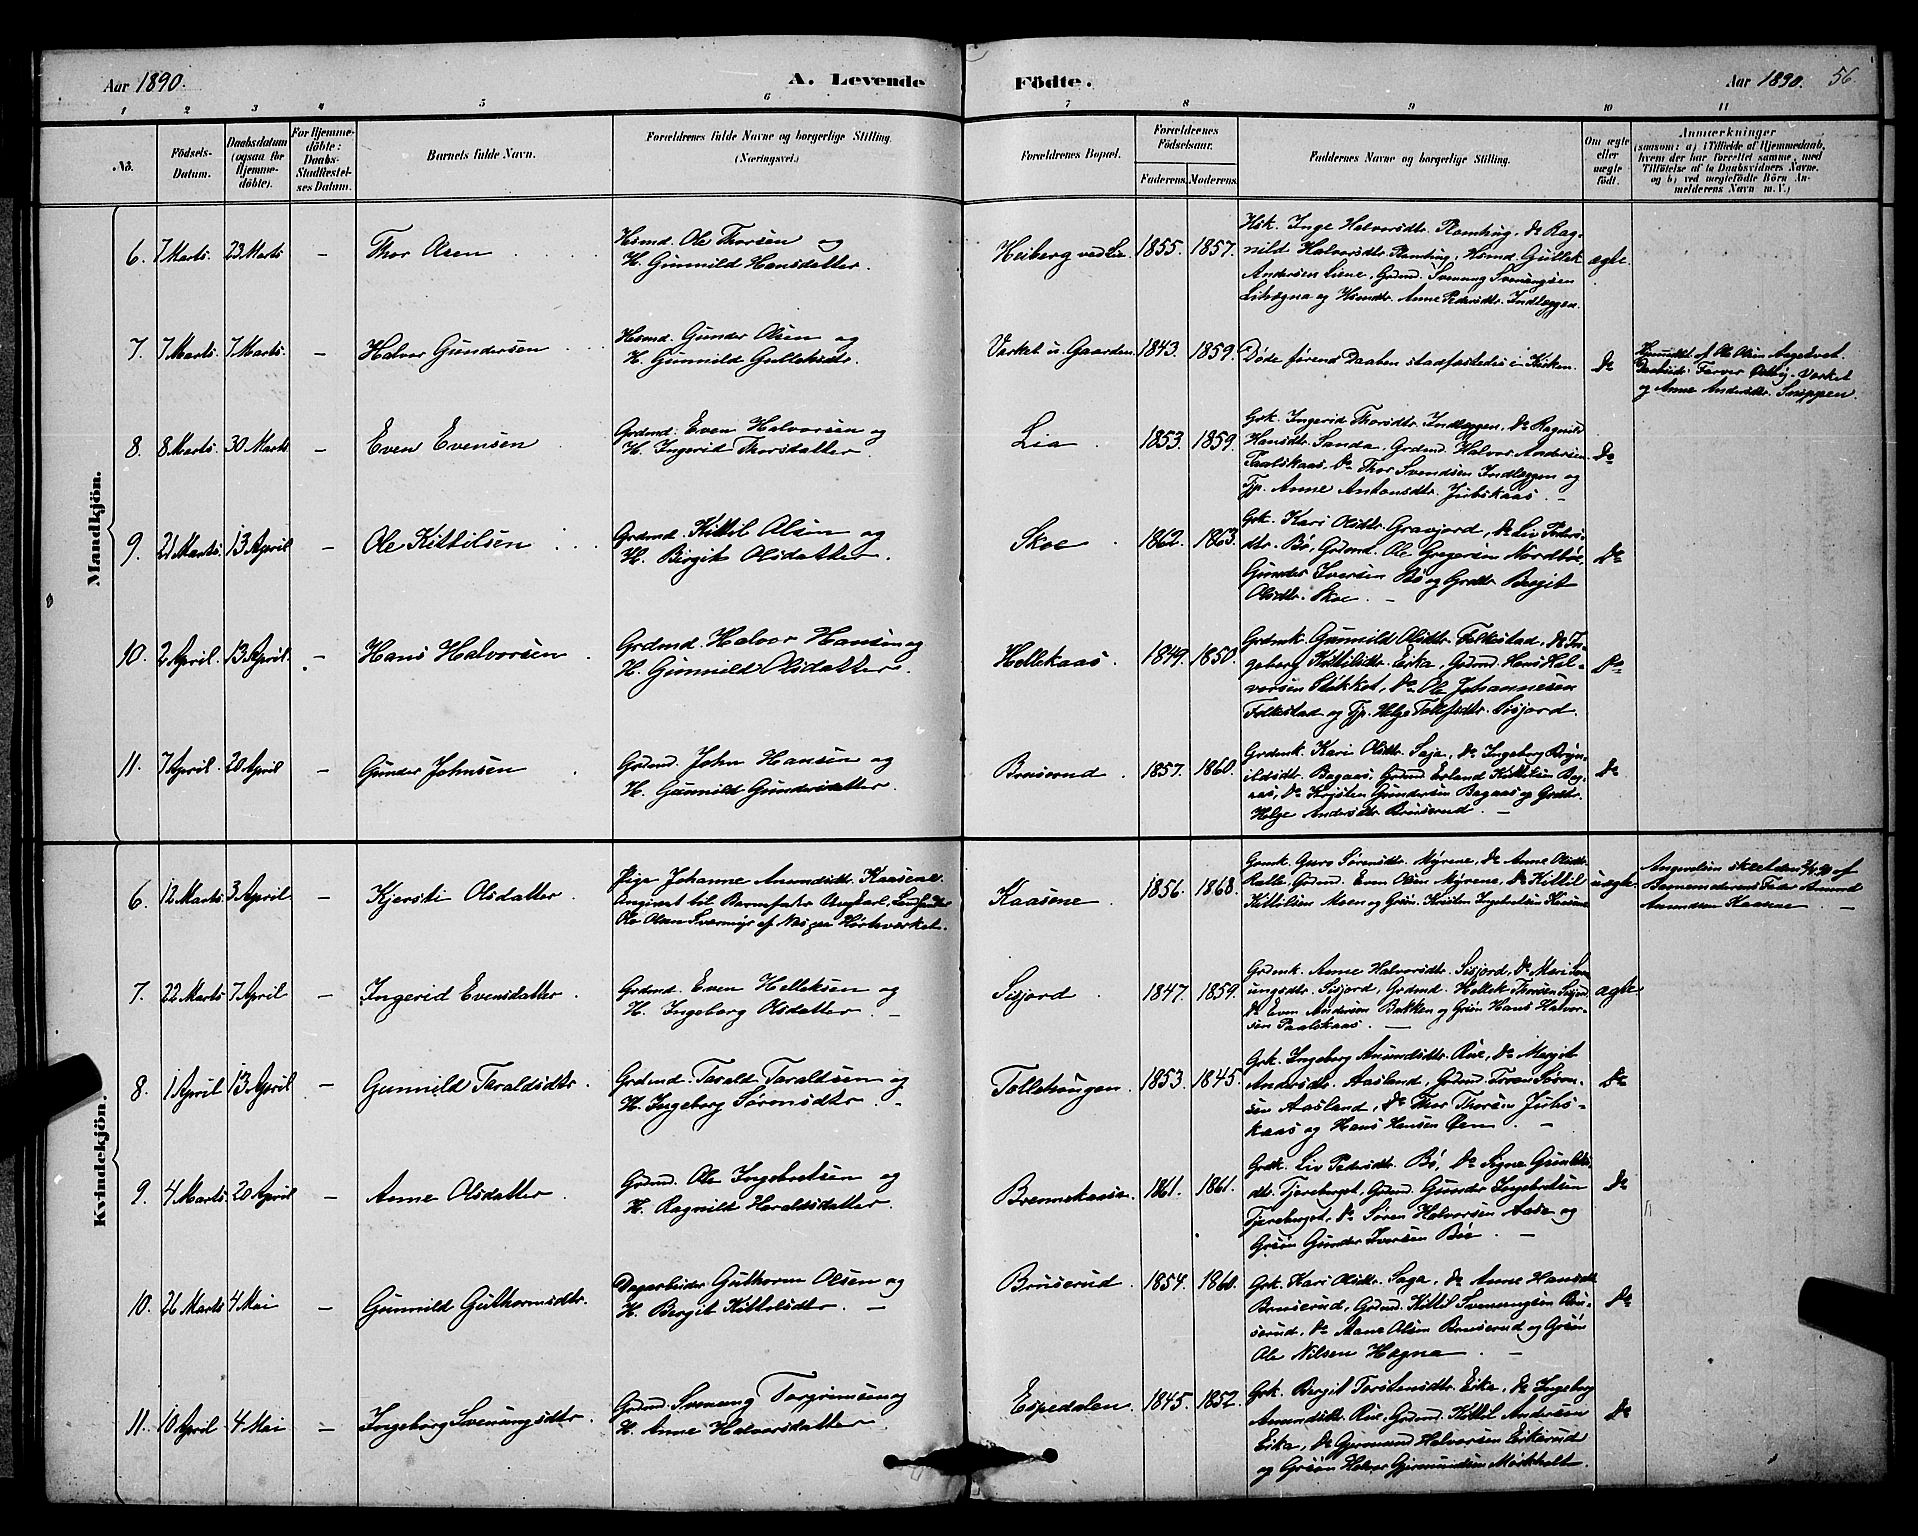 Aar 1890.
A. Levende
Födte.
Aar 1890. 56.
1 2 3 4 5 6 7 8 9 10 11
No.
Födsels-
Datum.
Daabsdatum
(ogsaa for
Hjemme-
döbte).
For Hjemme-
döbte:
Daabs-
Stadfæstel-
ses Datum.
Barnets fulde Navn.
Forældrenes fulde Navne og borgerlige Stilling.
(Næringsvei.)
Forældrenes Bopæl.
Forældrenes
Födselsaar.
Faderens. Moderens.
Faddernes Navne og borgerlige Stilling.
Om ægte
eller
uægte
födt.
Anmærkninger
(saasom: a) i Tilfælde af Hjemmedaab,
hvem der har forrettet samme, med
Tilföielse af to Daabsvidners Navne.
og b) ved uægtefödte Börn An-
melderens Navn m. V.)
Mandkjön.
6. 7 Marts. 23 Marts – Thor Olsen
Hsmd. Ole Thorsen og
H. Gunnild Hansdatter.
Heiberg ved Lia 1855. 1857.
Hsk. Inge Halvorsdtr. Ramting, Do Rag-
nild Halvorsdtr. Ramting, Hsmd. Gullek
Andersen Liene, Grdmd. Svenung Svenungsen
Lihægna og Hsmdtr. Anne Pedersdtr. Indlæggen.
ægte.
7. 7 Marts. 7 Marts. – Halvor Gundersen
Hsmd. Gunder Olsen og
H. Gunnild Gulleksdtr.
Værket u. Gaarden 1843. 1859.
Döde förend Daaben stadfæstedes i Kirken.
Do
Hjemmedöbt af Ole Olsen
Værket
og Anne Andersdtr. Snippen.
8. 8 Marts. 30 Marts – Even Evensen
Grdmd. Even Halvorsen og
H. Ingerid Thorsdatter.
Lia 1853. 1859.
Grk. Ingerid Thorsdtr. Indlæggen, Do Ragnild
Hansdtr. Sanda, Grdmd. Halvor Andersen
Paalskaas, Do Thor Svendsen Indlæggen og
Tjp. Anne Antonsdtr. Jutskaas. –
Do
9. 21 Marts. 13 April – Ole Kittilsen
Grdmd. Kittil Olsen og
H. Birgit Olsdatter.
Skoe 1862. 1863.
Grk. Kari Olsdtr. Gravjord, Do Liv Peders-
dtr. Bö, Grdmd. Ole Gregersen Nordböe,
Gunder Iversen Bö og Grdtr. Bergit
Olsdtr. Skoe. –
Do
10. 2 April. 13 April. – Hans Halvorsen
Grdmd. Halvor Hansen og
H. Gunnild Olsdatter.
Hellekaas. 1849. 1850.
Grdmk. Gunnild Olsdtr. Folkestad, Do In-
geborg Kittilsdtr. Eika, Grdmd. Hans Hal-
vorsen Stokket, Do Ole Johannesen
Folkestad og Tjp. Helge Tollefsdtr. Sisjord.
Do
11. 7 April. 20 April – Gunder Johnsen
Grdmd. John Hansen og
H. Gunnild Gundersdatter.
Bruserud. 1857. 1860.
Grdmk. Kari Olsdtr. Saga, Do Ingeborg Bryn-
ildsdtr. Bagaas, Grdmd. Erland Kittilsen Bag-
aas, Do Kristen Gundersen Bagaas og Grdtr.
Helge Andersdtr. Bruserud. –
Do
Kvindekjön.
6. 12 Marts 3 April – Kjersti Olsdatter.
Pige Johanne Amundsdtr. Kaasene.
Angivet til Barnefader Ungkarl,
Ole Olsen Svenmyr af
Kaasene 1856. 1868.
Grmk. Guro Sörensdtr. Myrene, Do Anne Olsdtr.
Kalle, Grdmd. Even Olsen Myrene, Do Kittil
Kittilsen Moen og Grsn. Kristen Ingebretsen Kaasene
uægte.
Angivelsen skeet den 3/4 90 af
Barnemoderens Fader Amund
Amundsen Kaasene –
7. 22 Marts 7 April – Ingerid Evensdatter.
Grdmd. Even Helleksen og
H. Ingeborg Olsdatter. –
Sisjord 1847. 1859.
Grdmk. Anne Halvorsdtr. Sisjord, Do Mari Sven-
ungsdtr. Sisjord, Grdmd. Hellek Thorsen Sisjord
Do Even Andersen Bakken og Grsön Hans Halvor-
sen Paalskaas. –
ægte
8. 1 April 13 April – Gunnild Taraldsdtr.
Grdmd. Tarald Taraldsen og
H. Ingeborg Sörensdtr. –
Tollehaugen. 1853. 1845.
Grk. Ingeborg Amundsdtr. Rue, Do Margit
Andersdtr. Aasland, Grdmd. Sören Sören-
sen Aasland, Do Thor Thorsen Juts-
kaas og Hans Hansen Öen. –
Do
9. 4 Marts 20 April – Anne Olsdatter.
Grdmd. Ole Ingebretsen og
H. Ragnild Haraldsdatter.
Brennekaasa. 1861. 1861.
Grdk. Liv Pedersdtr. Bö, Do Signe Gunleks-
dtr. Tjerebuget, Grdmd. Gunder Ingebretsen
Tjerebuget, Do Sören Halvorsen Aase og
Grsön Gunder Iversen Böe. –
Do
10. 26 Marts 4 Mai – Gunnild Guthormsdtr.
Dagarbeider Guthorm Olsen og
H. Bergit Kittelsdtr. –
Bruserud. 1854. 1860.
Grk. Kari Olsdtr. Saga, Do Anne Hansdtr.
Bruserud, Grdmd. Kittil Svenungsen Bru-
serud, Do Aane Olsen Bruserud og Grsön
Ole Nilsen Hægna –
Do
11. 10 April 4 Mai – Ingeborg Svenungsdtr.
Grdmd. Svenung Torgrimsen og
H. Anne Halvorsdatter
Espedalen 1845. 1852.
Grk. Bergit Torstensdtr. Eika, Do Ingeborg
Amundsdtr. Rue, Grdmd. Kittil Andersen
Eika, Do Gjermund Halvorsen Eikerud
og Grsön Halvor Gjermundsen Mörkholt.
Do